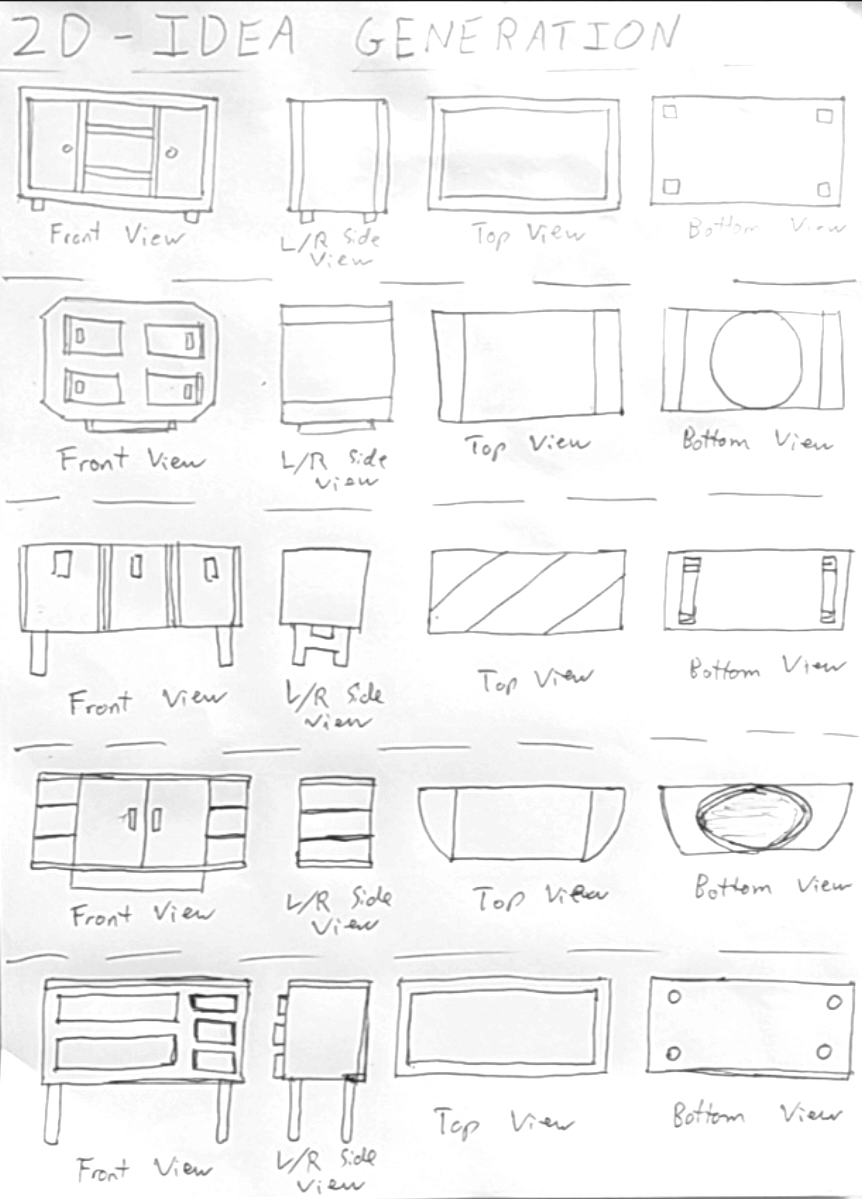 2D-IDEA GENERATION
Front View
L/R Side View
Top View
Bottom View
Front View
L/R Side View
Top View
Bottom View
Front View
L/R Side View
Top View
Bottom View
Front View
L/R Side View
Top View
Bottom View
Front View
L/R Side View
Top View
Bottom View